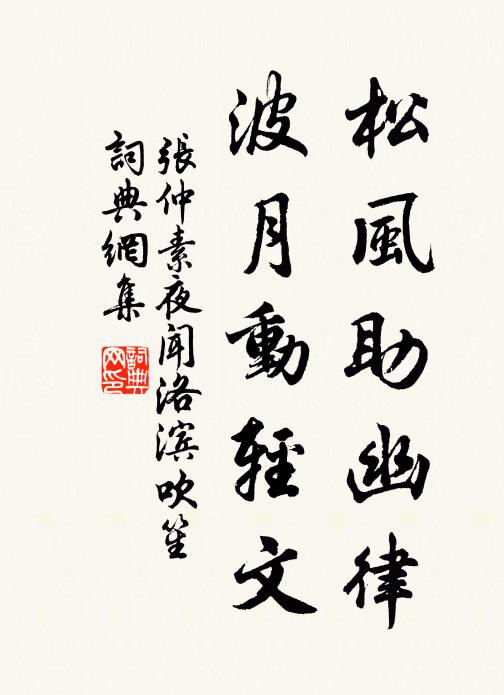 松風助幽律
波月動輕文
張仲素夜聞洛滨吹笙
詞典網集
詞典网印